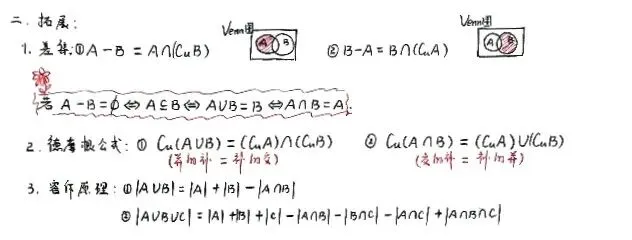 二、拓展:
Venn图 Venn图
1. 差集:① A-B = A∩(CuB) ② B-A = B∩(CuA)
A B A B
若 A-B=∅⇔A⊆B⇔A∪B=B⇔A∩B=A
2. 德摩根公式: ① Cu(A∪B) = (CuA)∩(CuB) ② Cu(A∩B) = (CuA)∪(CuB)
(并的补 = 补的交) (交的补 = 补的并)
3. 容斥原理: ① |A∪B| = |A| + |B| - |A∩B|
② |A∪B∪C| = |A| + |B| + |C| - |A∩B| - |B∩C| - |A∩C| + |A∩B∩C|